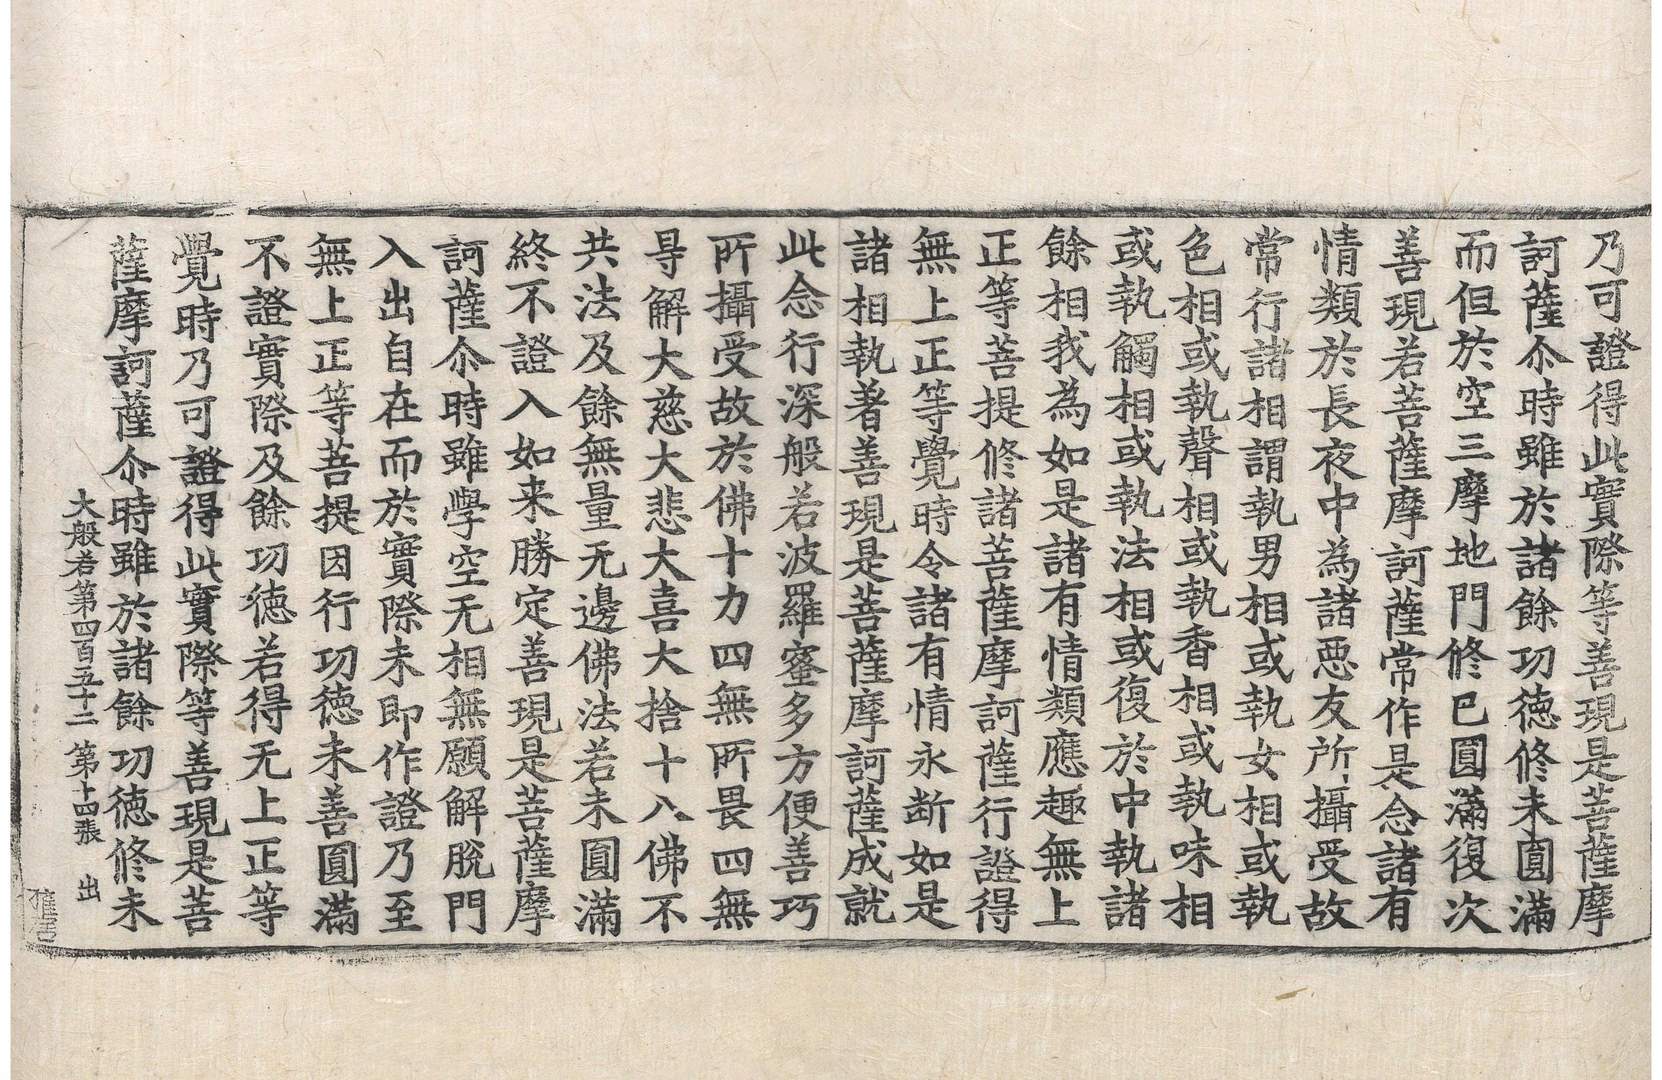 乃可證得此實際等善現是菩薩摩
訶薩尒時雖於諸餘功德修未圓滿
而但於空三摩地門修已圓滿復次
善現若菩薩摩訶薩常作是念諸有
情類於長夜中為諸惡友所攝受故
常行諸相謂執男相或執女相或執
色相或執聲相或執香相或執味相
或執觸相或執法相或復於中執諸
餘相我為如是諸有情類應趣無上
正等菩提修諸菩薩摩訶薩行證得
無上正等覺時令諸有情永断如是
諸相執著善現是菩薩摩訶薩成就
此念行深般若波羅蜜多方便善巧
所攝受故於佛十力四無所畏四無
㝵解大慈大悲大喜大捨十八佛不
共法及餘無量无邊佛法若未圓滿
終不證入如来勝定善現是菩薩摩
訶薩尒時雖學空无相無願解脫門
入出自在而於實際未即作證乃至
無上正等菩提因行功德未善圓滿
不證實際及餘功德若得无上正等
覺時乃可證得此實際等善現是菩
薩摩訶薩尒時雖於諸餘功德修未
大般若第四百五十二 第十四張 出